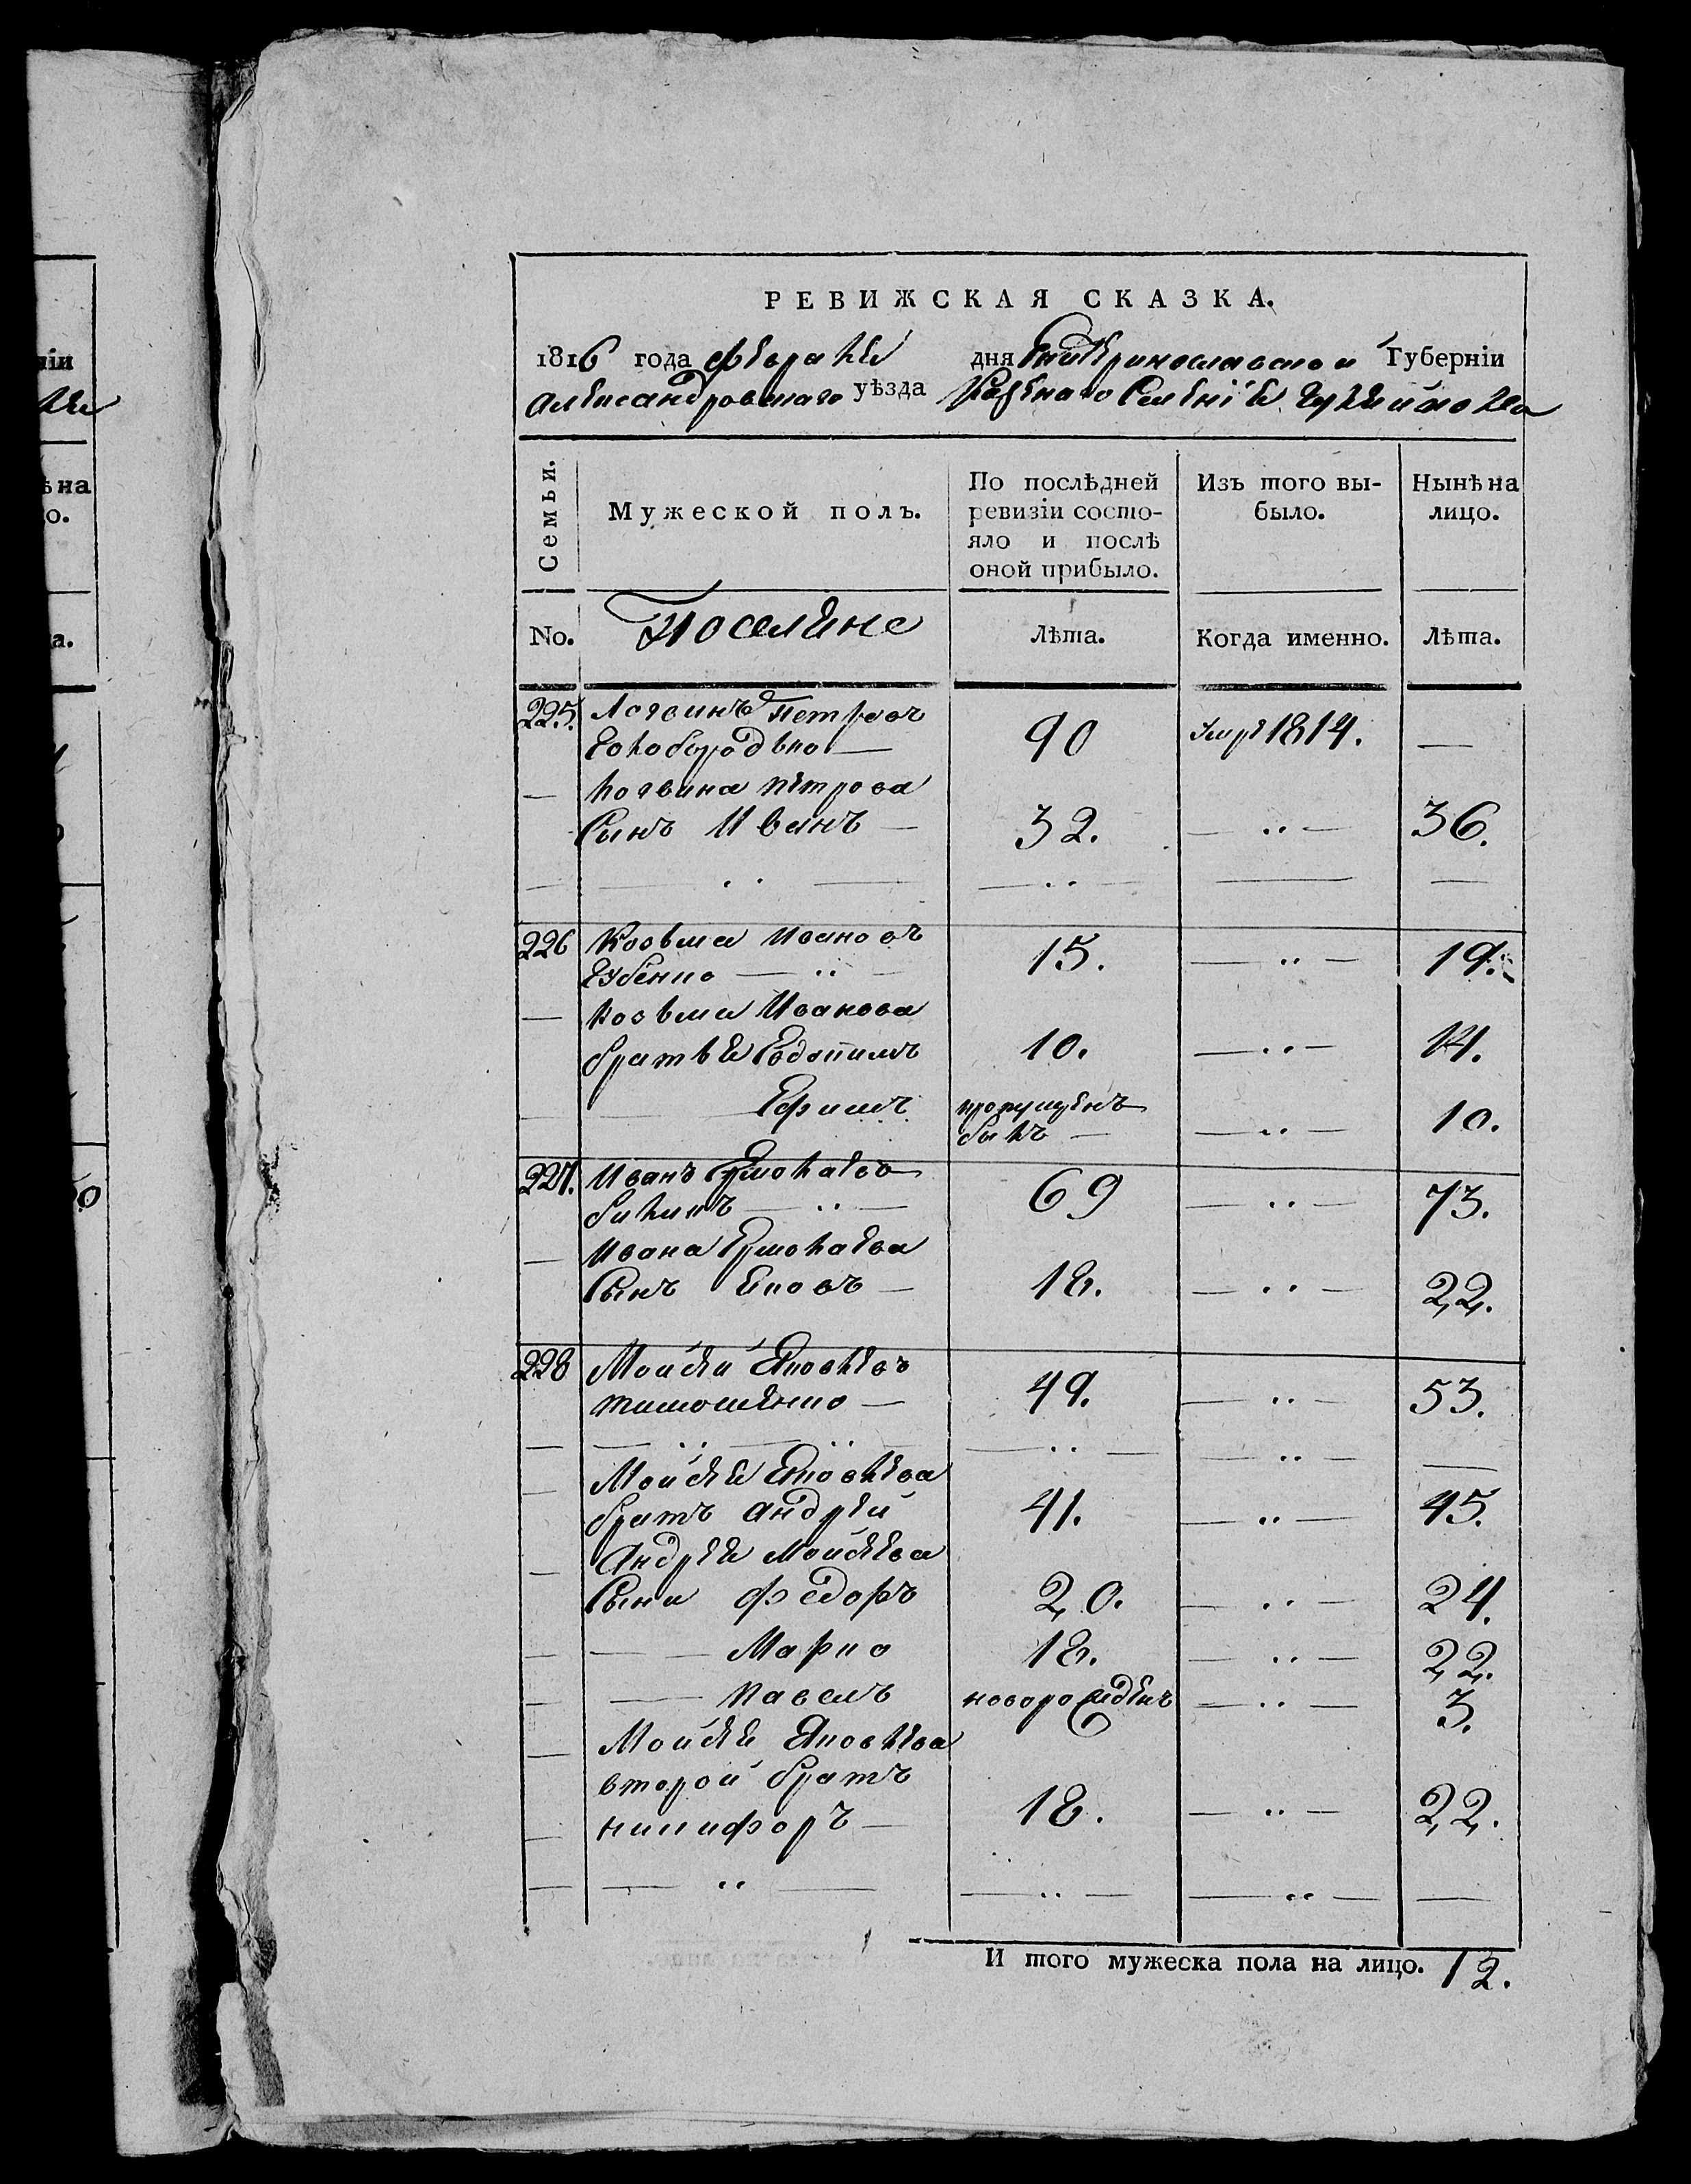 ніи
ѣ на
о.
а.
РЕВИЖСКАЯ СКАЗКА.
1816 года февраля дня Екатеринославской Губерніи
Александровскаго уѣзда Казенаго Селенія
Семьи.
Мужеской полъ.
По послѣдней
ревизіи состо-
яло и послѣ
оной прибыло.
Изъ того вы-
было.
Нынѣ на
лицо.
No. Поселяне Лѣта. Когда именно. Лѣта.
225. Логвинъ Петровъ
Голобородько — 90 умре 1814. —
— Логвина Петрова
Сынъ Иванъ — 32. — 36.
226 Козьма Ивановъ
Губенко — 15. — 19.
— Козьмы Иванова
братья Евдокимъ 10. — 14.
— Ефимъ пропущенъ
былъ — — 10.
227. Иванъ Ермолаевъ
69 — 73.
— Ивана Ермолаева
Сынъ Яковъ — 18. — 22.
228 Мойсей Яковлевъ
Тимошенко — 49. — 53.
— Мойсея Яковлева
братъ Андрей 41. — 45.
— Андрея Мойсеева
Сыны Федоръ 20. — 24.
— Марко 18. — 22.
— Павелъ новорожденъ — 3.
— Мойсея Яковлева
второй братъ
— Никифоръ — 18. — 22.
И того мужеска пола на лицо. 12.